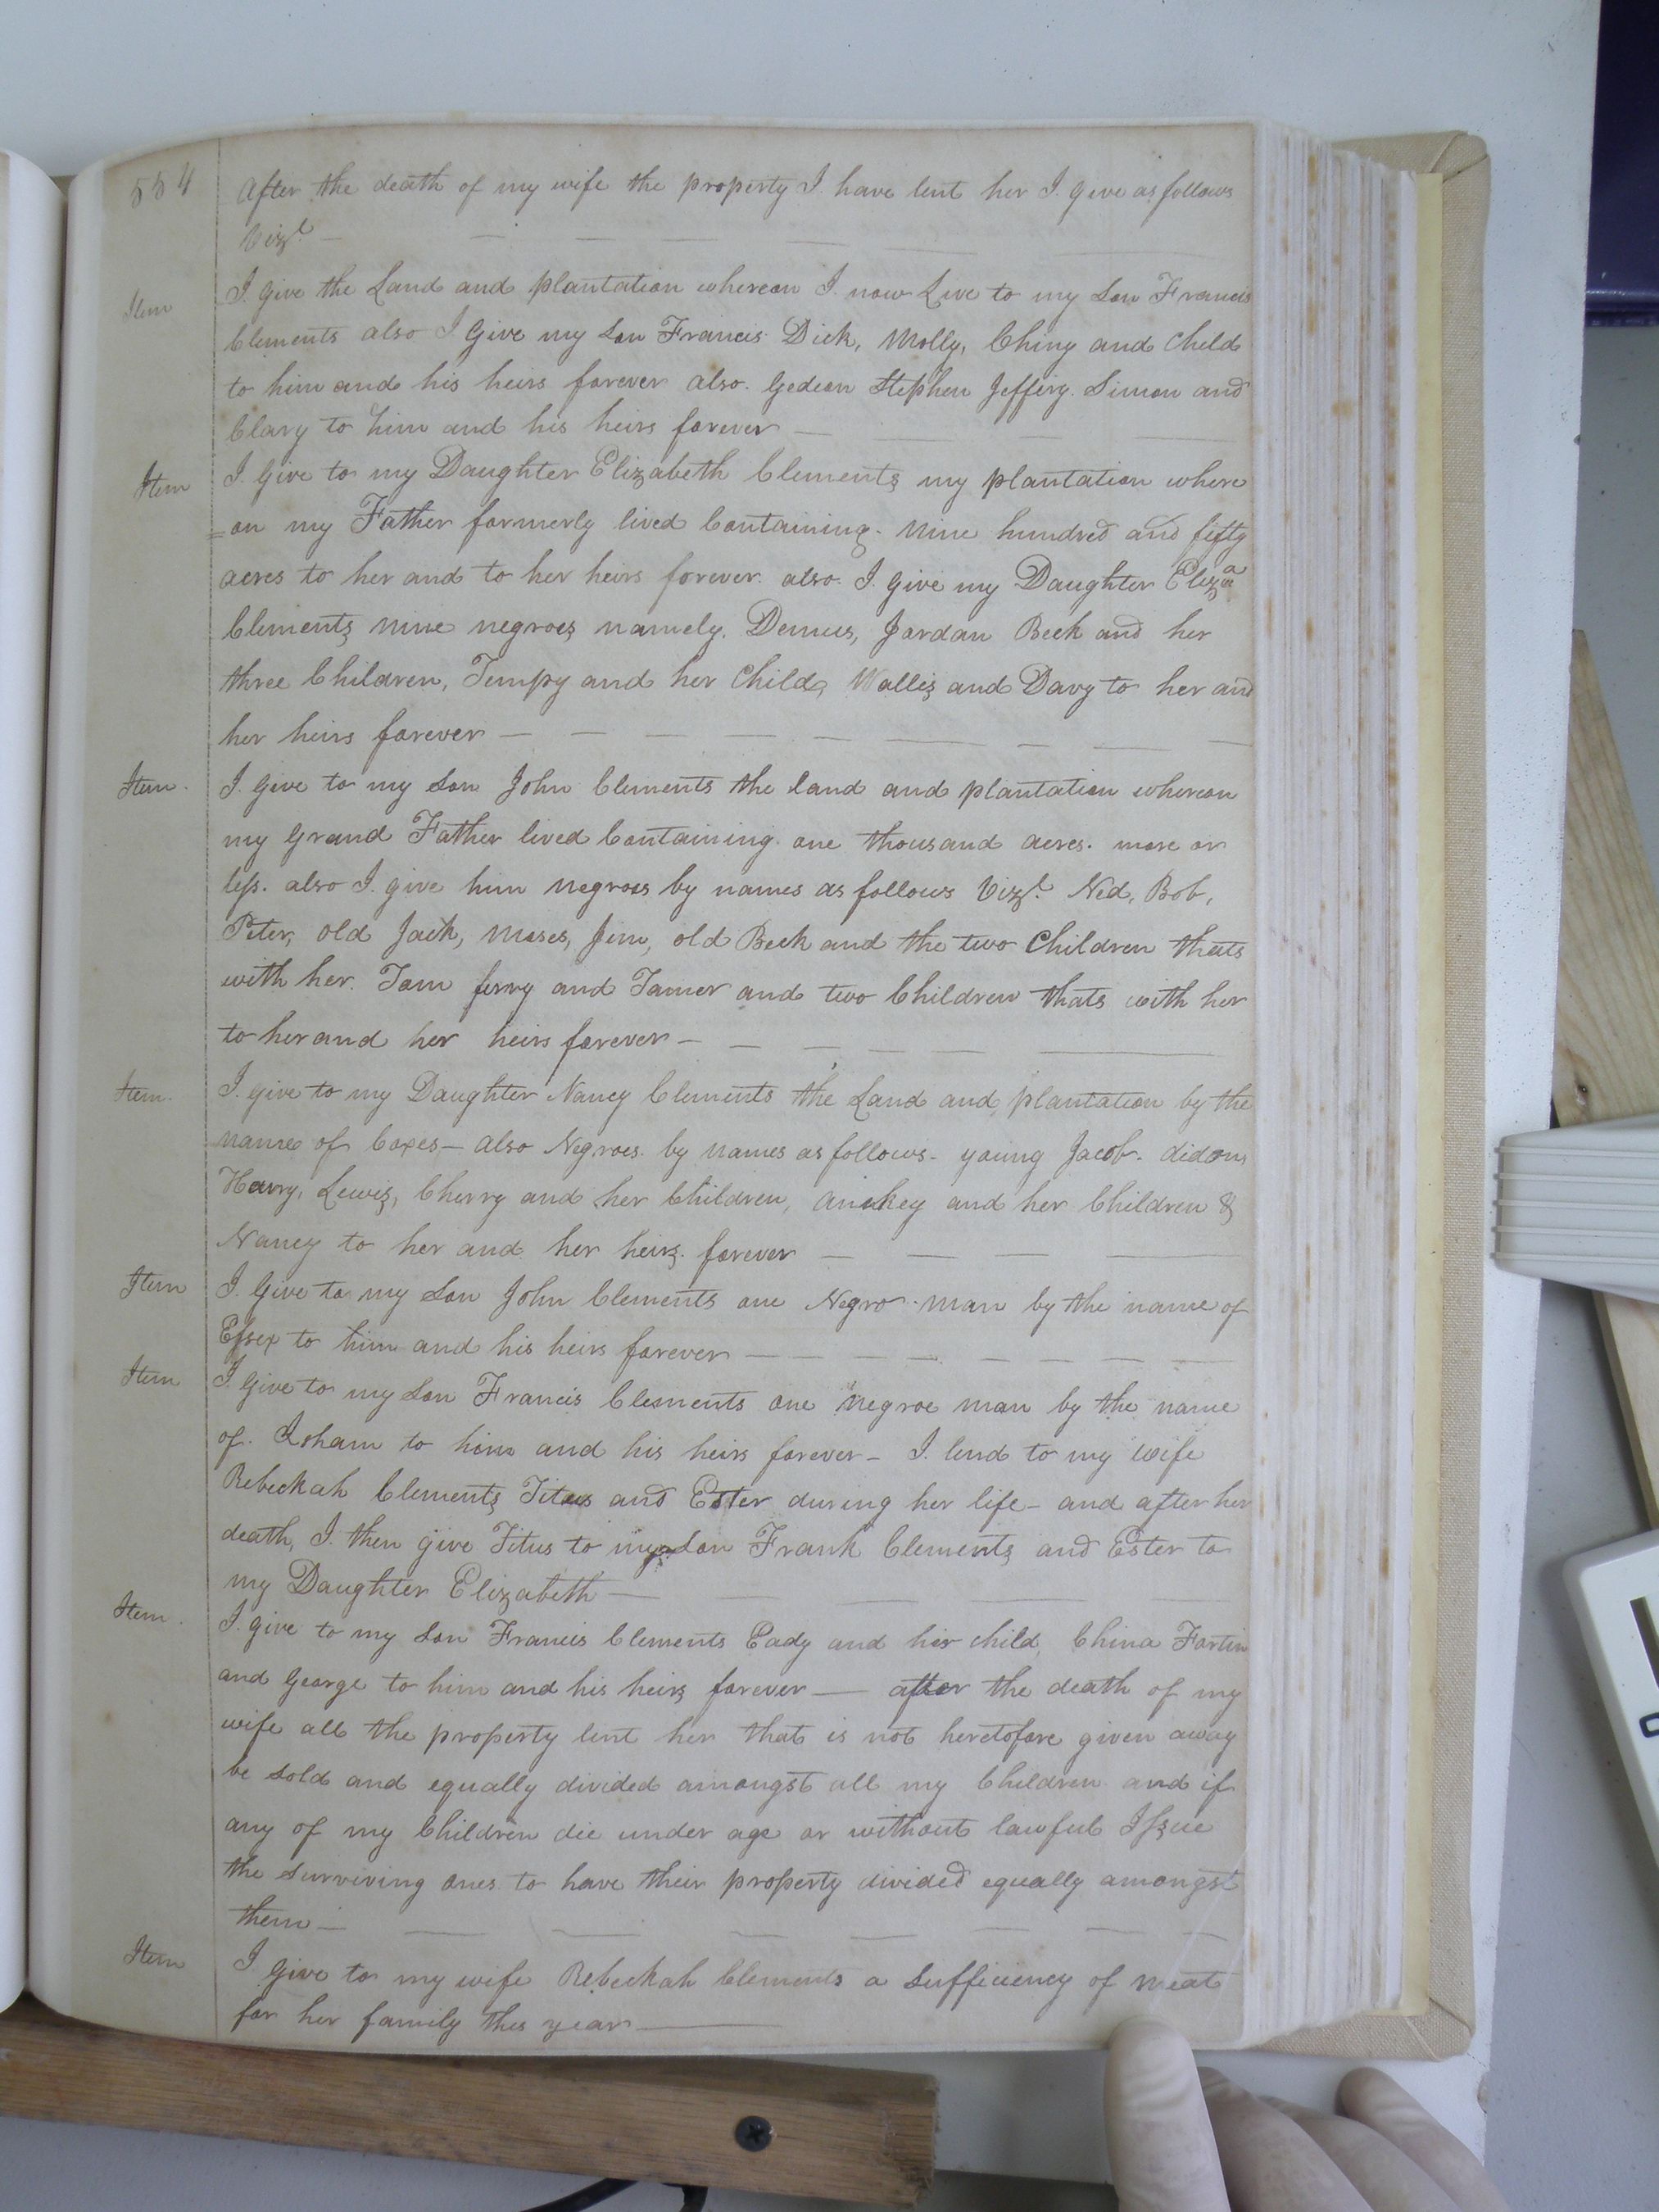 554
After the death of my wife the property I have lent her I give as follows
Vizt.
Item
I give the Land and plantation whereon I now Live to my Son Francis
Clements also I Give my Son Francis Dick, Molly, Chiny and Child
to him and his heirs forever also Gedeon Stephen Jeffery Simon and
Clary to him and his heirs forever
Item
I Give to my Daughter Elizabeth Clements my plantation where
=on my Father formerly lived Containing nine hundred and fifty
acres to her and to her heirs forever also I give my Daughter Eliza
Clements nine negroes namely. Demus, Jordan Beck and her
three Children, Tempy and her Child, Wallis and Davy to her and
her heirs forever
Item
I give to my Son John Clements the land and plantation whereon
my Grand Father lived Containing one thousand acres more or
less. also I give him negroes by names as follows Vizt. Ned, Bob,
Peter, old Jack, Moses, Jim, old Beck and the two Children thats
with her. Tom Jerry and Tamer and two Children thats with her
to her and her heirs forever
Item
I give to my Daughter Nancy Clements the Land and plantation by the
name of Coxes — also Negroes by names as follows young Jacob
Harry, Lewis, Cherry and her Children, and her Children &
Nancy to her and her heirs forever
Item
I Give to my Son John Clements one Negro man by the name of
Essex to him and his heirs forever
Item
I Give to my Son Francis Clements one negroe man by the name
of Isham to him and his heirs forever — I lend to my wife
Rebeckah Clements Titus and Ester during her life — and after her
death, I then give Titus to my Son Frank Clements and Ester to
my Daughter Elizabeth
Item
I give to my Son Francis Clements and her child, China
and George to him and his heirs forever — after the death of my
wife all the property lent her that is not heretofore given away
be Sold and equally divided amongst all my Children and if
any of my Children die under age or without lawful Issue
the surviving ones to have their property divided equally amongst
them
Item
I give to my wife Rebeckah Clements a Sufficiency of meat
for her family this year